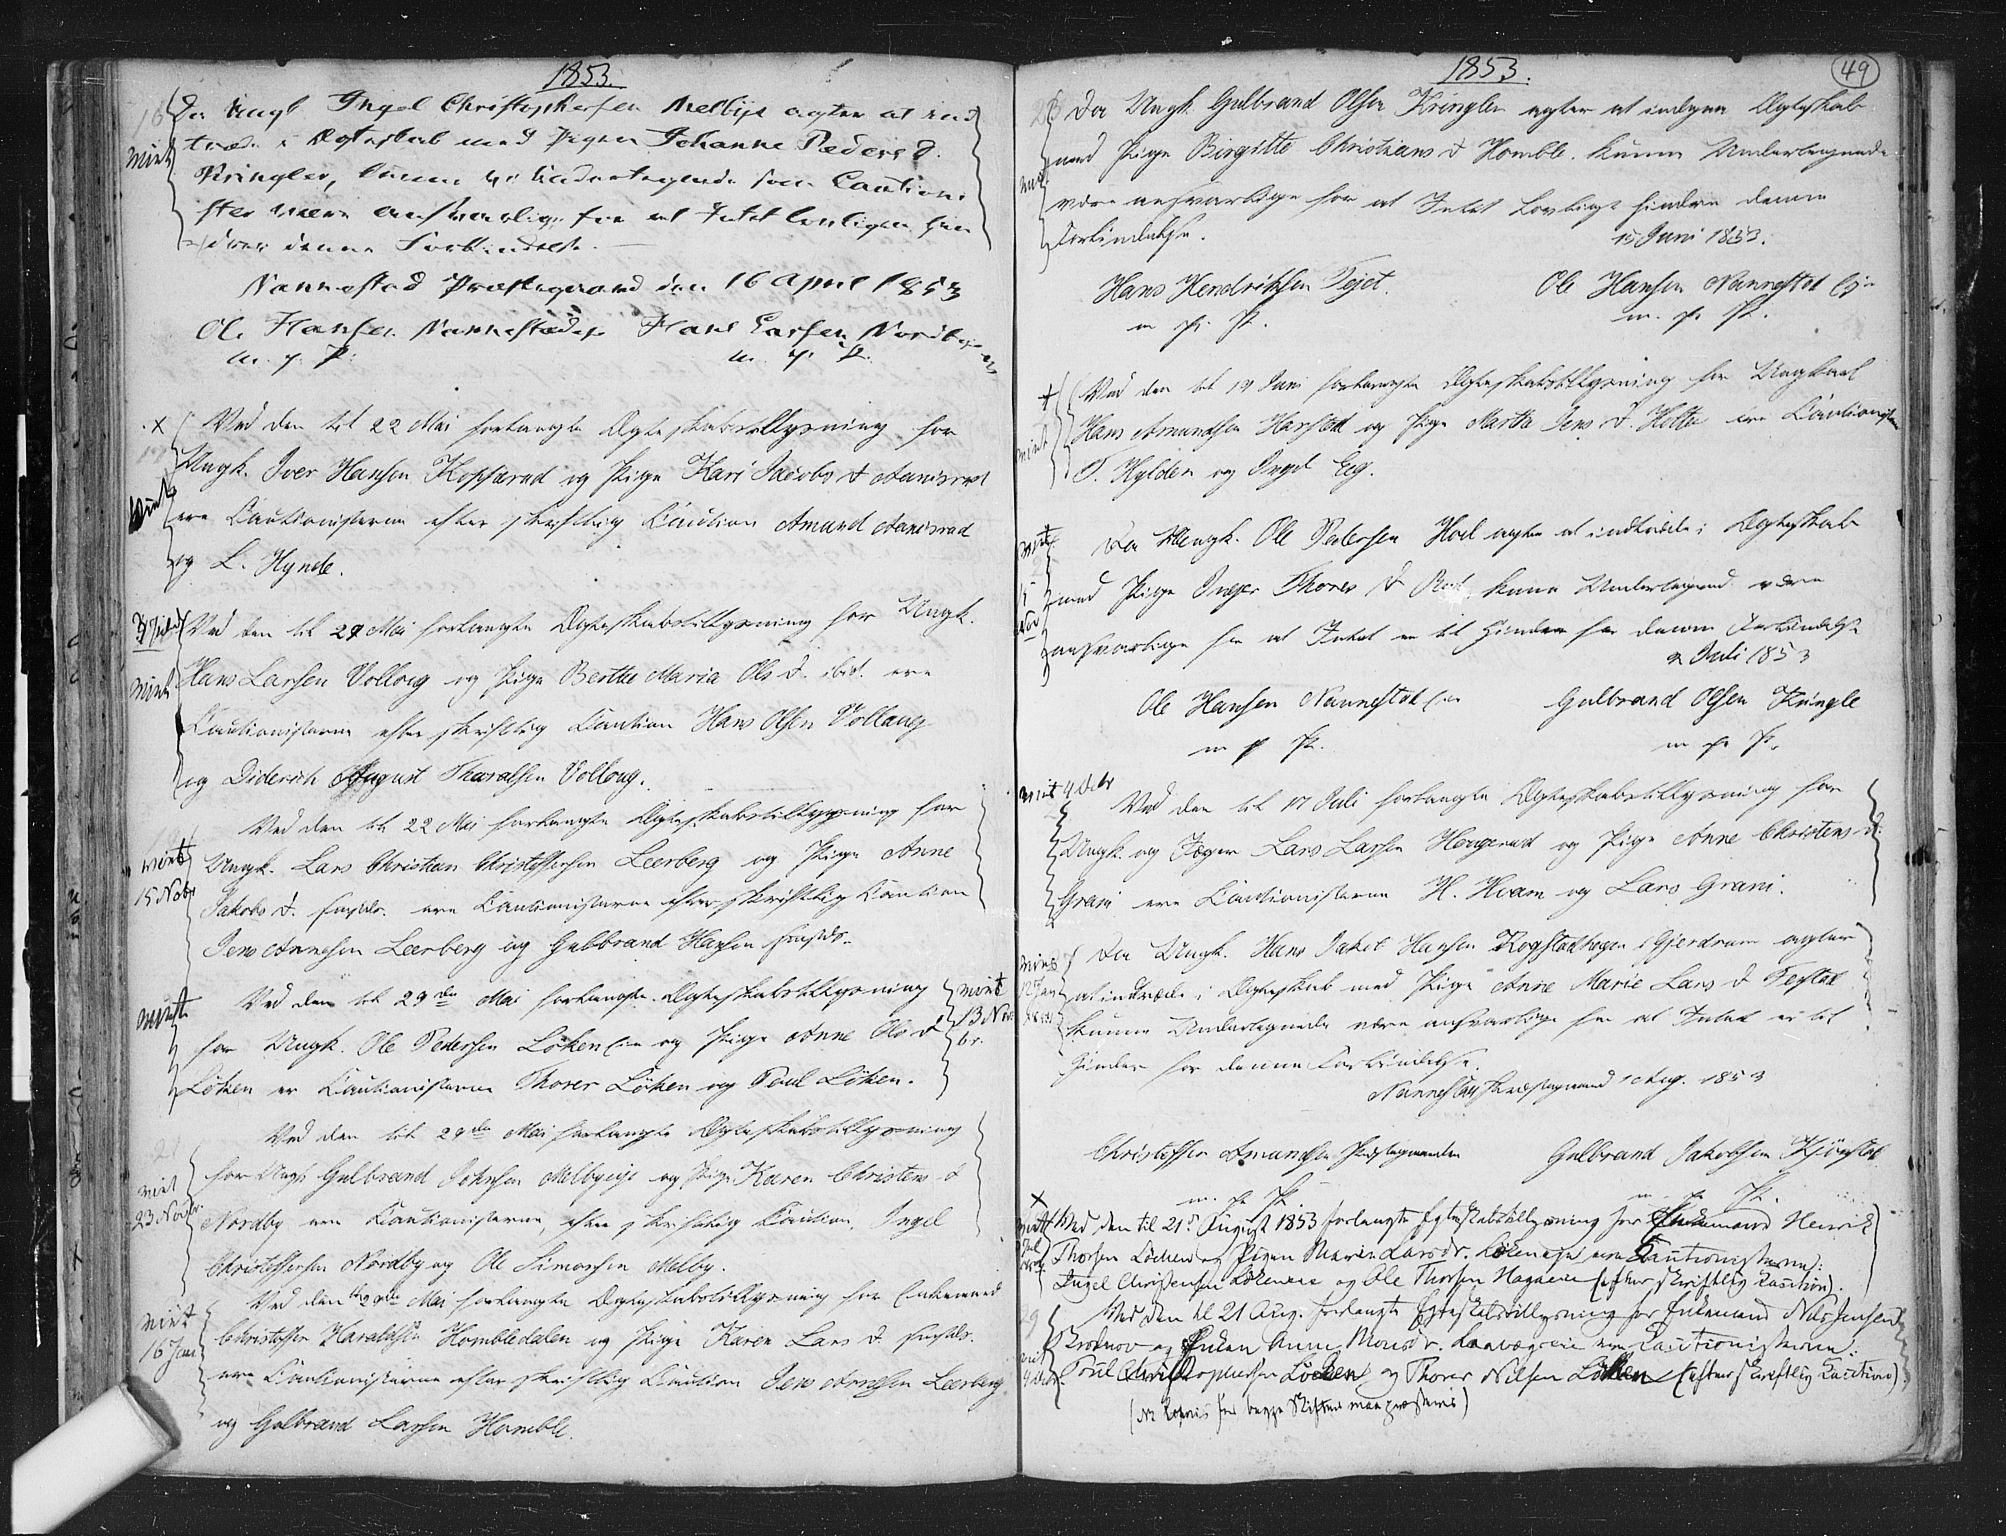 1853.
Da Ungk. Ingel Christophersen Melbye agter at ind
træde i Ægteskab med Pigen Johanne Peders D.
Kringler, kunne vi Undertegnede som Cautioni
ster være ansvarlige for at Intet lovligen hin
drer denne Forbindelse.
viet
Nannestad Præstegaard den 16 April 1853
Ole Hansen Nannestadeje Hans Larsen Nordby
m. p. P. m. p. P.
x
Ved den til 22 Mai forlangte Ægteskabstillysning for
Ungk. Iver Hansen Kopperud og Pige Kari Jacobs D Aanisrud
viet
ere Cautionisterne efter skriftlig Caution Amund Aanisrud
og L. Hynde.
Ved den til 29 Mai forlangte Ægteskabstillysning for Ungk.
viet
Hans Larsen Vollaug og Pige Berthe Maria Ols D. ibid. ere
Cautionisterne efter skriftlig Caution Hans Olsen Vollaug
og Diderich August Thoralsen Vollaug.
Ved den til 22 Mai forlangte Ægteskabstillysning for
viet
15 Nobr
Ungk. Lars Christian Christoffersen Leerberg og Pige Anne
Jakobs D. sammesteds. ere Cautionisterne efter skriftlig Caution
Jens Arnesen Leerberg og Gulbrand Hansen
Ved den til 29de Mai forlangte Ægteskabstillysning
viet
13 Nov
br.
for Ungk. Ole Pedersen Löken eie og Pige Anne Ols D
Löken er Cautionisterne Thorer Löken og Poul Löken.
Ved den til 29de Mai forlangte Ægteskabstillysning
for Ungk Gulbrand Johnsen Melbyeje og Pige Karen Christens D
viet
23 Novbr.
Nordby ere Cautionisterne, efter skriftlig Caution, Ingel
Christoffersen Nordby og Ole Simonsen Melby.
Ved den til 29de Mai forlangte Ægteskabstillysning for Enkemand
viet
16 Juni
Christoffer Haraldsen Hombledalen og Pige Karen Lars D
ere Cautionisterne efter skriftlig Caution Jens Arnesen Leerberg
og Gulbrand Larsen Homble.
1853.
49
Da Ungk. Gulbrand Olsen Kringler agter at indgaa Ægteskab
med Pige Birgitte Christians D Homble. kunne Undertegnede
være ansvarlige for at Intet Lovligt hindrer denne
Forbindelse.
15 Juni 1853.
Hans Hendriksen Tejet. Ole Hansen Nannestad eje
m. p. P. m. p. P.
Ved den til 19 Juni forlangte Ægteskabstillysning for Ungkarl
viet
Hans Amundsen Harstad og Pige Martha Jens D. Holter ere Cautionister
T. Hylden og Ingel Eeg.
viet
Da Ungk. Ole Pedersen Hoel agter at indtræde i Ægteskab
med Pige Inger Thorers D kunne Undertegnede være
ansvarlige for at Intet er til Hinder for denne Forbindelse
2 Juli 1853
Ole Hansen Nannestad eie Gulbrand Olsen Kringle
m p P. m. p. P.
viet
Ved den til 17 Juli forlangte Ægteskabstillysning for
Ungk. og Jæger Lars Larsen Haugerud og Pige Anne Christens D.
Grani ere Cautionisterne H. Hvam og Lars Grani.
Da Ungk. Hans Jakob Hansen Rogstadhagen i Gjerdrum agter
at indtræde i Ægteskab med Pige Anne Marie Lars D
kunne Undertegnede være ansvarlige for at Intet er til
Hinder for denne Forbindelse.
Nannestad Præstegaard 1 Aug. 1853
Christoffer Amundsen Præstegaarden Gulbrand Jakobsen Kjönstad
m. p. P. m. p. P.
Ved den til 21de August 1853 forlangte Egteskabstillysning for Enkemand Henrik
Thorsen Löken og Pigen Marie Larsdr. Lökeneie ere Cautionisterne:
Ingel Christensen Lökeneie og Ole Thorsen Hagaeie (efter skriftlig Caution).
Ved den til 21 Aug. forlangte Egteskabstillysning for Enkemand Nils Jensen
og Enken Anne Monsdr. ere Cautionisterne:
Poul Christophersen Löken og Thorer Nilsen Löken (efter skriftlig Caution).